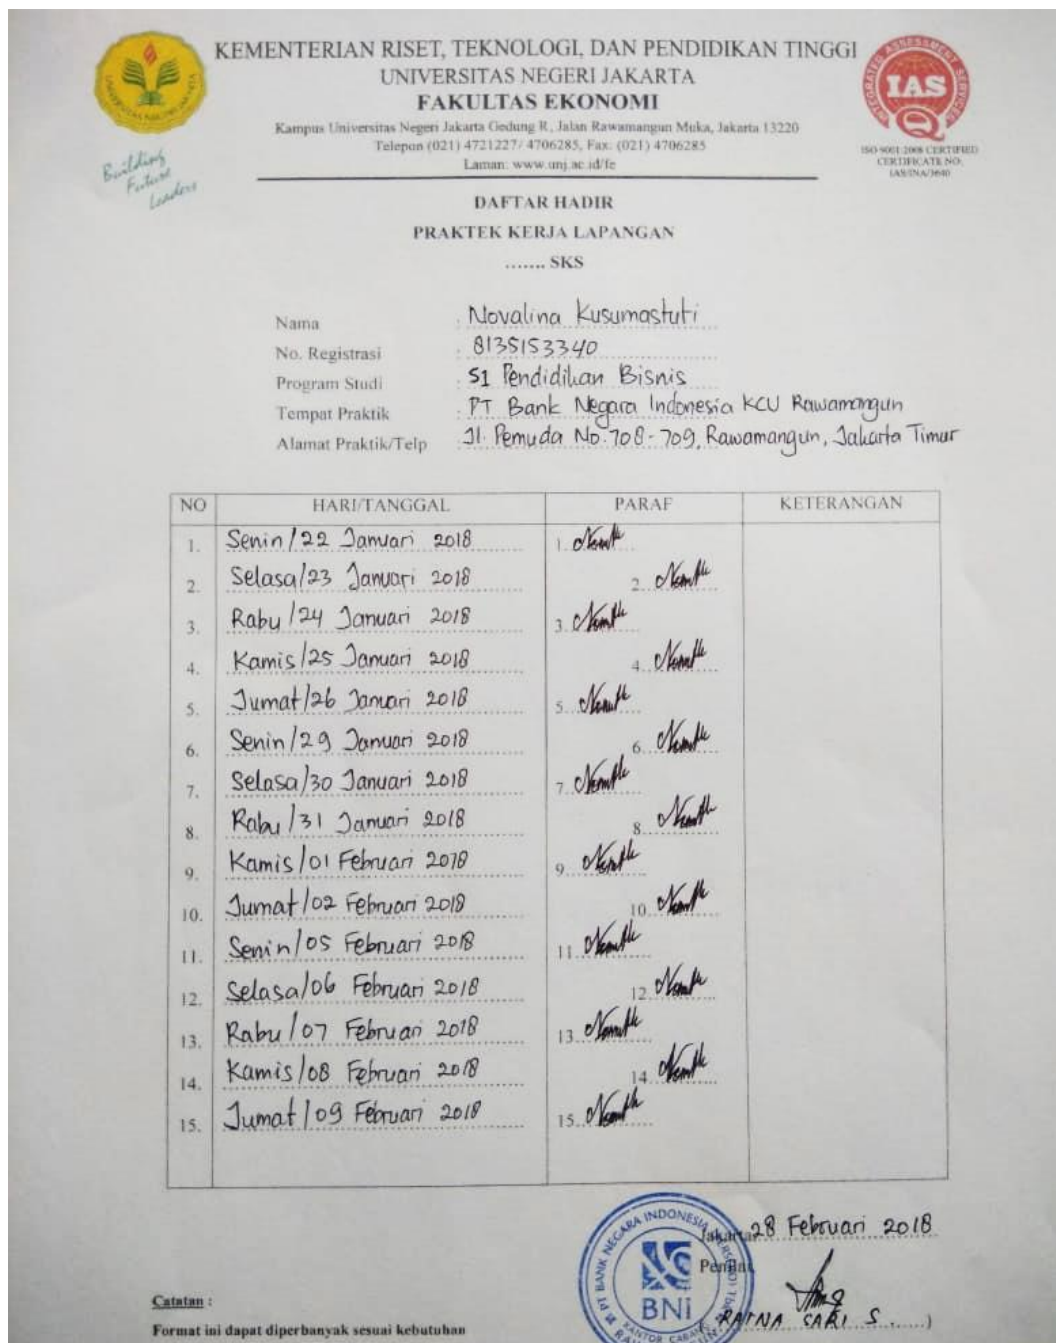 KEMENTERIAN RISET, TEKNOLOGI, DAN PENDIDIKAN TINGGI
UNIVERSITAS NEGERI JAKARTA
FAKULTAS EKONOMI
Kampus Universitas Negeri Jakarta Gedung R, Jalan Rawamangun Muka, Jakarta 13220
Telepon (021) 4721227/ 4706285, Fax: (021) 4706285
Laman: www.unj.ac.id/fe
Building
Future
Leaders
INTEGRATED ASSESSMENT SERVICES
IAS
ISO 9001:2008 CERTIFIED
CERTIFICATE NO.
IAS/INA/3640
DAFTAR HADIR
PRAKTEK KERJA LAPANGAN
....... SKS
Nama : Novalina Kusumastuti
No. Registrasi : 8135153340
Program Studi : S1 Pendidikan Bisnis
Tempat Praktik : PT Bank Negara Indonesia KCU Rawamangun
Alamat Praktik/Telp : Jl. Pemuda No. 708-709, Rawamangun, Jakarta Timur
NO HARI/TANGGAL PARAF KETERANGAN
1. Senin/22 Januari 2018 1.
2. Selasa/23 Januari 2018 2.
3. Rabu/24 Januari 2018 3.
4. Kamis/25 Januari 2018 4.
5. Jumat/26 Januari 2018 5.
6. Senin/29 Januari 2018 6.
7. Selasa/30 Januari 2018 7.
8. Rabu/31 Januari 2018 8.
9. Kamis/01 Februari 2018 9.
10. Jumat/02 Februari 2018 10.
11. Senin/05 Februari 2018 11.
12. Selasa/06 Februari 2018 12.
13. Rabu/07 Februari 2018 13.
14. Kamis/08 Februari 2018 14.
15. Jumat/09 Februari 2018 15.
Jakarta 28 Februari 2018
PT BANK NEGARA INDONESIA
BNI
KANTOR CABANG
RATNA SARI S. )
Catatan :
Format ini dapat diperbanyak sesuai kebutuhan